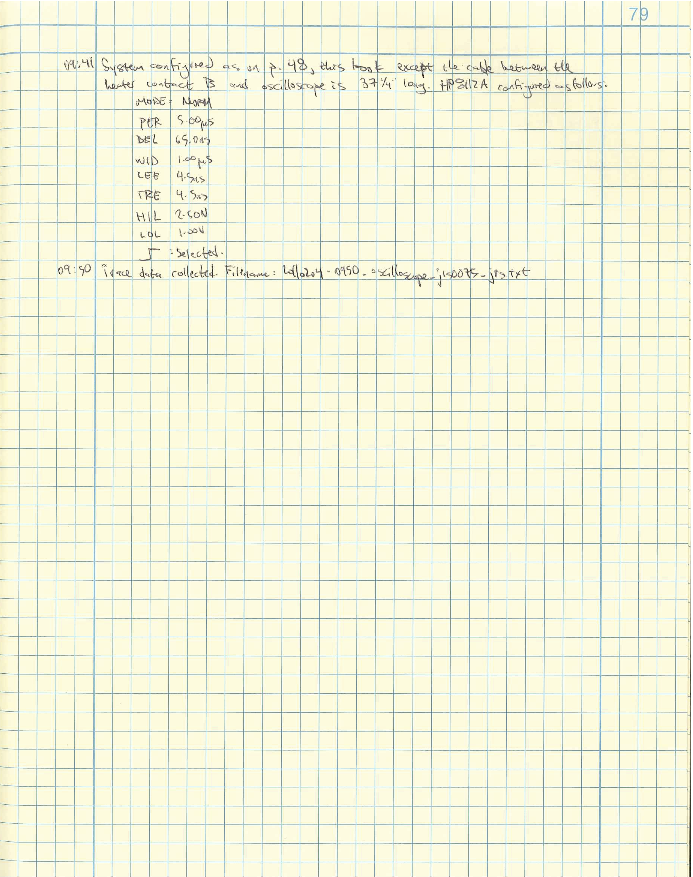 79
09:41 System configured as on p. 48, this book except the cable between the
heater contact B and oscilloscope is 37¼" long. HP8112A configured as follows.
MODE: NORM
PER 5.00µs
DEL 65.0ns
WID 1.00µs
LEE 4.5ns
TRE 4.5ns
HIL 2.50V
LOL 1.00V
: selected.
09:50 Trace data collected. Filename: